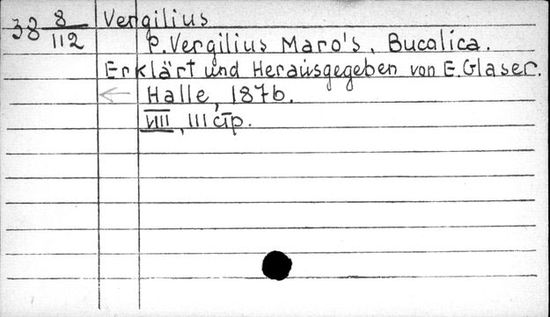 38 8/112 Vergilius
P. Vergilius Maro's, Bucolica.
Erklärt und Herausgegeben von E. Glaser.
Halle, 1876.
VIII, 111 стр.